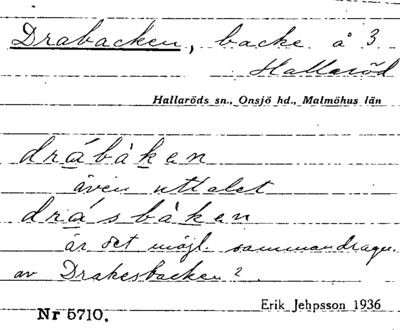 Drabacken, backe å 3
Hallaröd
Hallaröds sn., Onsjö hd., Malmöhus län
drábàken
även uttalet
drásbàken
är det möjl. sammandragn.
av Drakesbacken?
Erik Jehpsson 1936
Nr 5710.